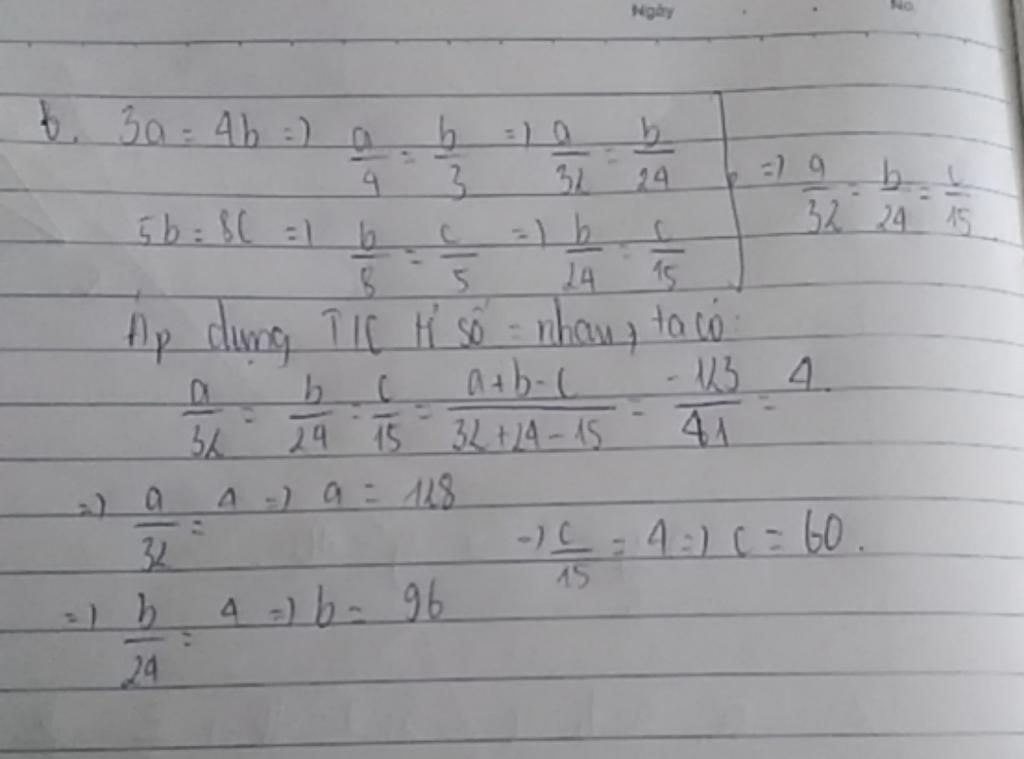 Ngày No.
b. 3a = 4b => a/4 = b/3 => a/32 = b/24
=> a/32 = b/24 = c/15
5b = 8c => b/8 = c/5 => b/24 = c/15
Áp dụng T/C tỉ số = nhau, ta có:
a/32 = b/24 = c/15 = a+b-c/32+24-15 = -123/41 = 4.
=> a/32 = 4 => a = 128
=> c/15 = 4 => c = 60.
=> b/24 = 4 => b = 96